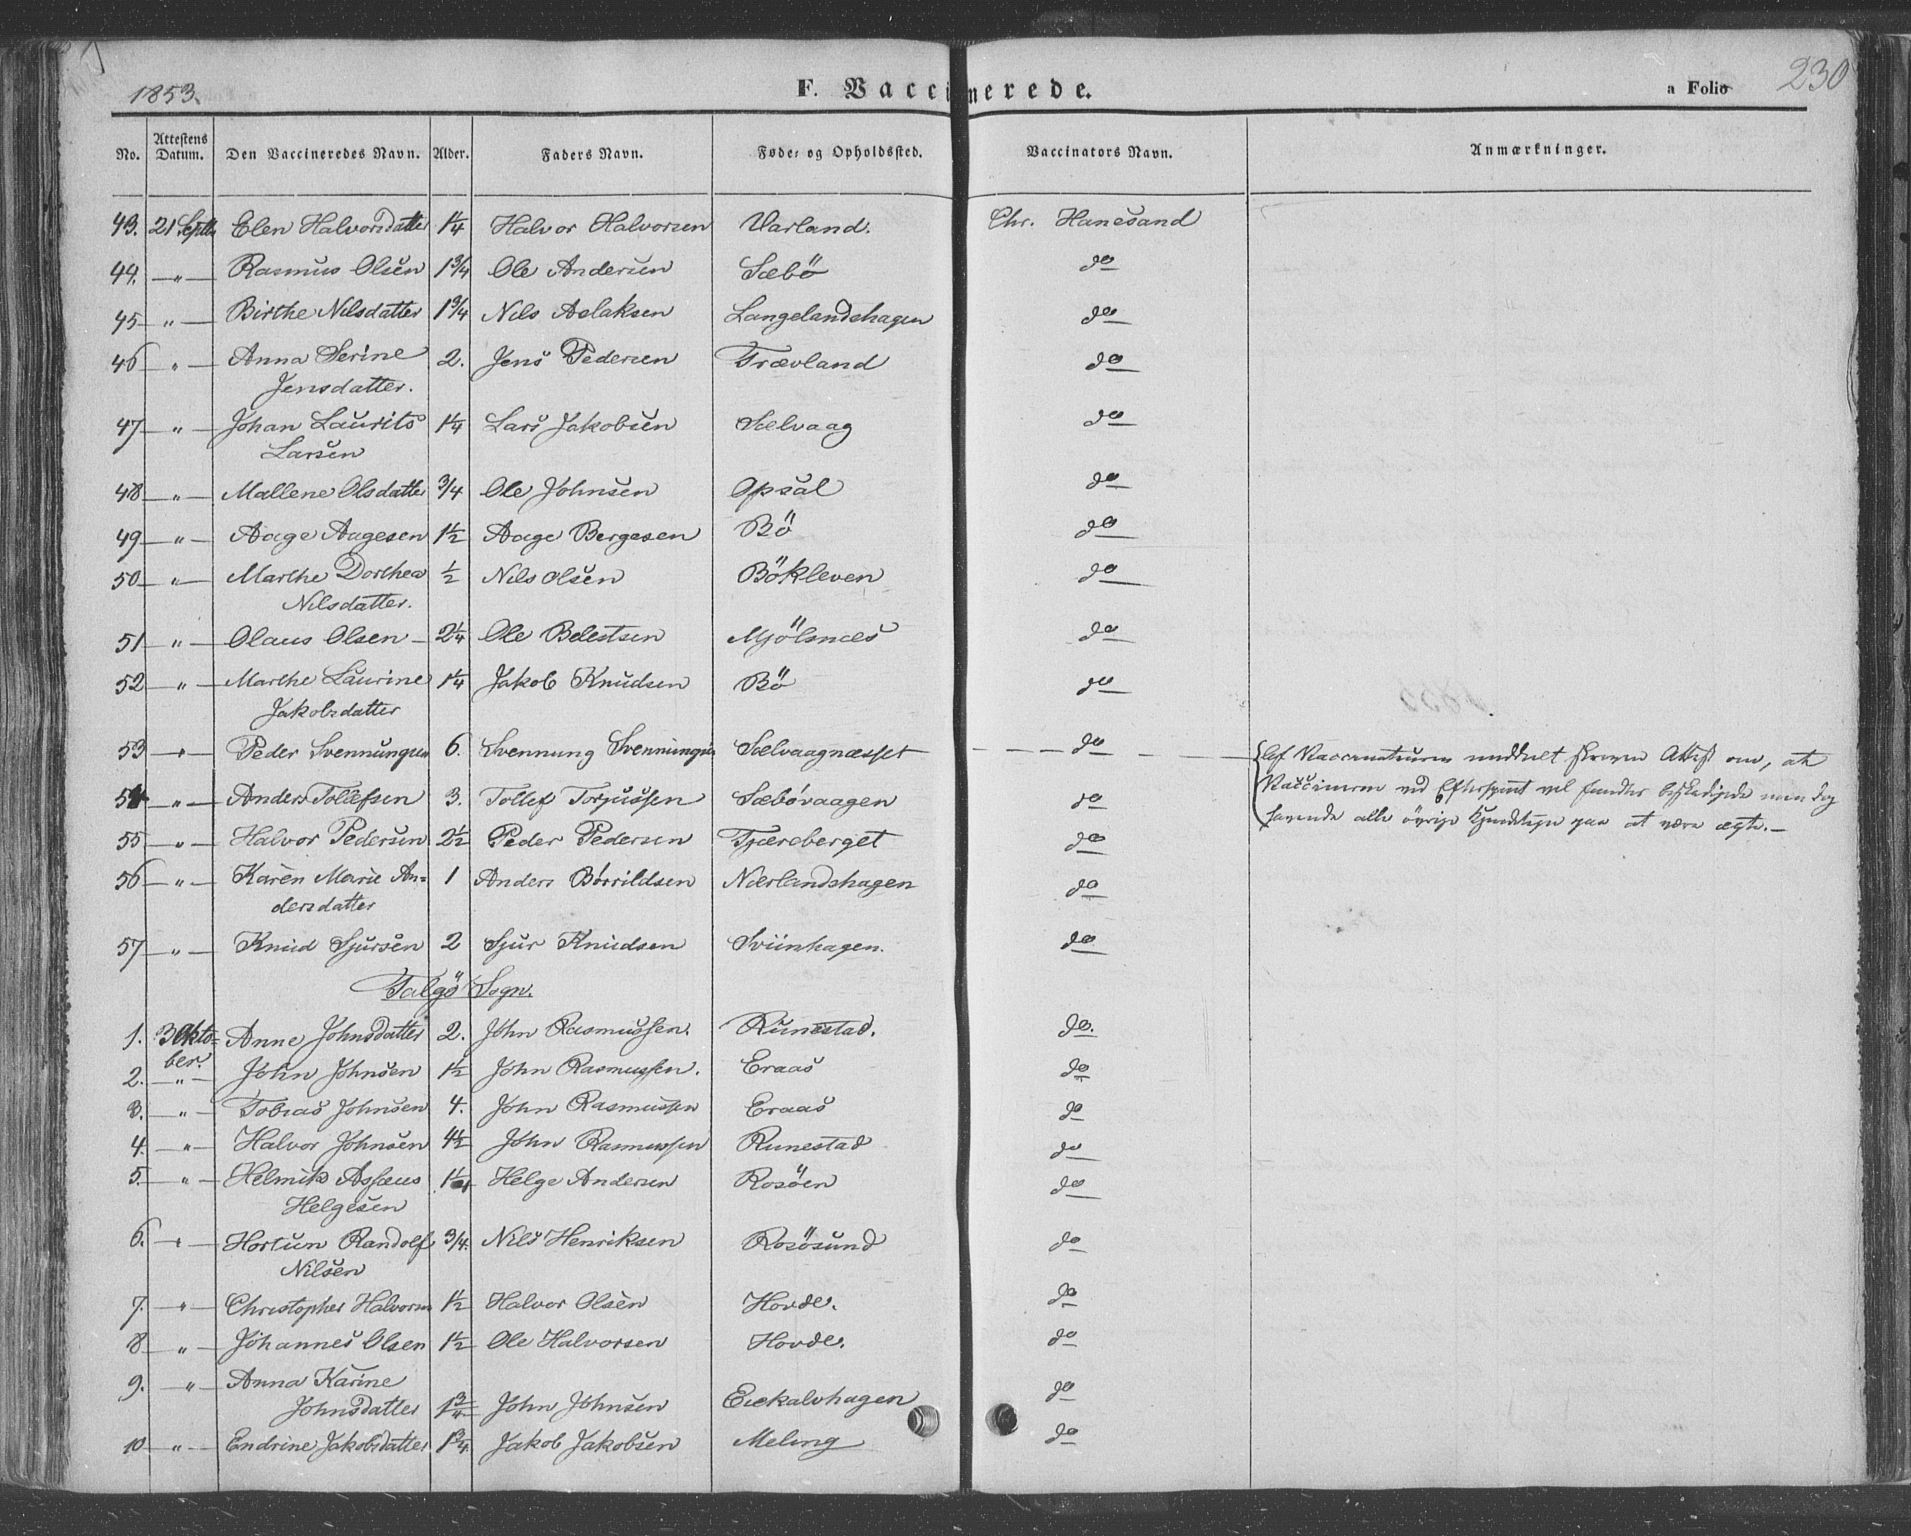 1853. F. Vaccinerede. a Folio 230
No. Attestens Datum. Den Vaccineredes Navn. Alder. Faders Navn. Føde- og Opholdssted. Vaccinators Navn. Anmærkninger.
43. 21 Septbr Elen Halvorsdatter 1¼ Halvor Halvorsen Varland. Chr. Hanesand
44. —"— Rasmus Olsen 1¾ Ole Andersen Sæbö do
45 —"— Birthe Nilsdatter 1¾ Nils Aslaksen Langelandshagen do
46 " Anna Serine 2. Jens Pedersen Trævland do
Jensdatter.
47 —"— Johan Laurits 1¼ Lars Jakobsen Sælvaag do
Larsen
48 —"— Mallene Olsdatter ¾ Ole Johnsen Opsal do
49 —"— Aage Aagesen 1½ Aage Bergesen Bö do
50 —"— Marthe Dorthea ½ Nils Olsen Bökleven do
Nilsdatter.
51 —"— Olaus Olsen — 2¼ Ole Belestsen Mjölsnæs do
52 —"— Marthe Laurine 1¼ Jakob Knudsen Bö do
Jakobsdatter
53 —"— Peder Svennungsen 6. Svennung Svennungsen Sælvaagnæsset — — — do
Af Vaccinateuren meddelt skreven Attest om, at
54 —"— Anders Tollefsen 3. Tollef Torjussen Sæbövaagen do
Vaccinen ved Eftersynet vel fandtes beskadiget men dog
havende alle övrige Kjendetegn paa at være ægte. —
55 —"— Halvor Pedersen 2½ Peder Pedersen Tjæreberget do
56 —"— Karen Marie An- 1 Anders Börrildsen Nærlandshagen do
dersdatter
57 —"— Knud Sjursen 2 Sjur Knudsen Sviinhagen. do
Talgö Sogn.
1. 3 Okto- Anne Johnsdatter 2. John Rasmussen. Runestad. do.
ber.
2. —"— John Johnsen 1½ John Rasmussen. Eraas do
3. —"— Tobias Johnsen 4. John Rasmussen Eraas do
4. —"— Halvor Johnsen 4½ John Rasmussen Runestad do
5. —"— Helmik Asseus Helge Andersen Rosöen do
Helgesen
6. —"— Hortun Randolf ¾ Nils Henriksen Rosösund do
Nilsen
7. —"— Christopher Halvorsen 1½ Halvor Olsen Hovde. do
8 —"— Johannes Olsen 1½ Ole Halvorsen Hovde. do
9. —"— Anna Karine
Johnsdatter 1¾ John Johnsen Eiekalvhagen do
10 —"— Endrine Jakobsdatter 1¾ Jakob Jakobsen Meling do